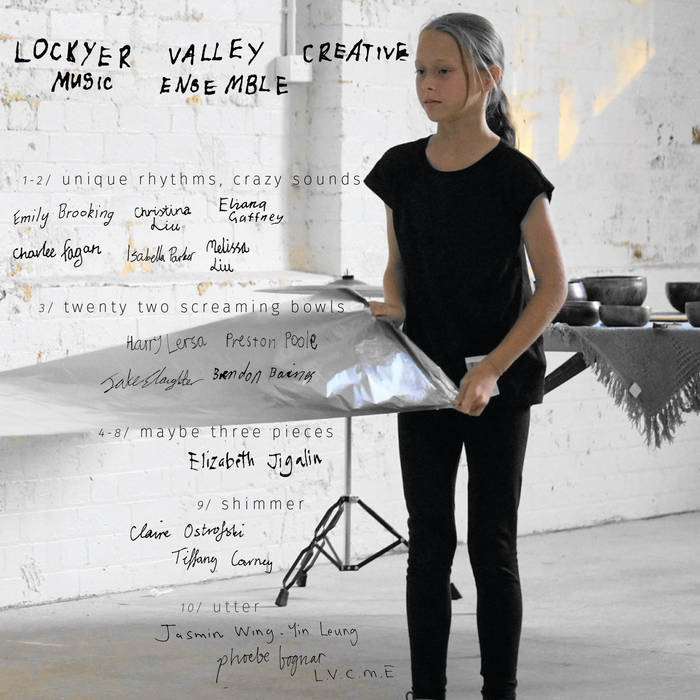 LOCKYER VALLEY CREATIVE
MUSIC ENSEMBLE
1-2/ unique rhythms, crazy sounds
Emily Brooking Christina Liu Eliana Gaffney
Charlee Fagan Isabella Parker Melissa Liu
3/ twenty two screaming bowls
Harry Lersa Preston Poole
Jake Slaughter Brendon Baines
4-8/ maybe three pieces
Elizabeth Jigalin
9/ shimmer
Claire Ostrofski
Tiffany Carney
10/ utter
Jasmin Wing-Yin Leung
phoebe bognar
L.V.C.M.E